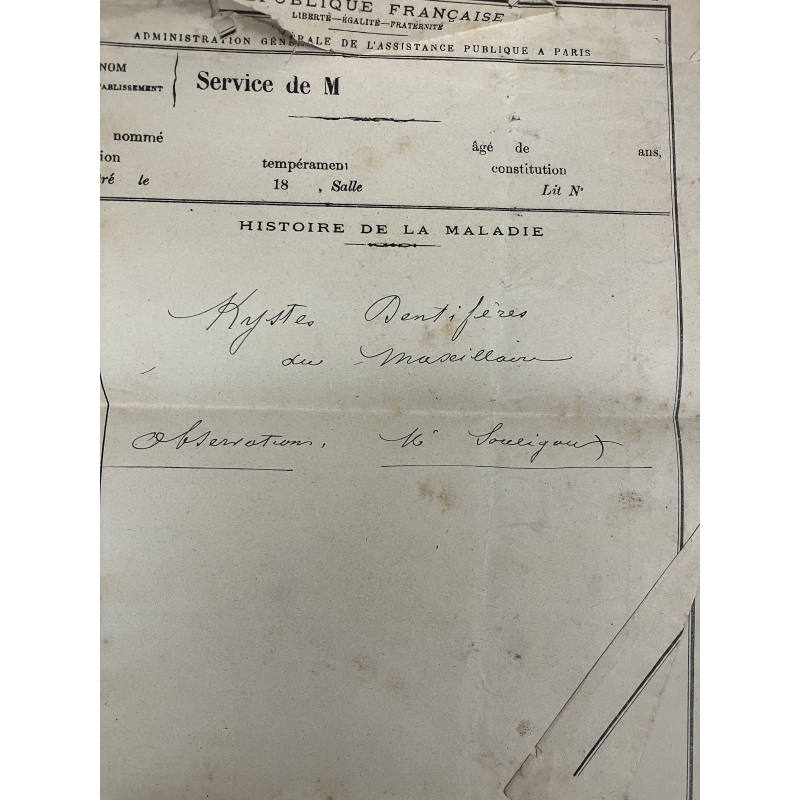 PUBLIQUE FRANÇAISE
LIBERTÉ—ÉGALITÉ—FRATERNITÉ
ADMINISTRATION GÉNÉRALE DE L'ASSISTANCE PUBLIQUE A PARIS
NOM
ABLISSEMENT
Service de M
nommé âgé de ans,
ion tempérament constitution
ré le 18 , Salle Lit N°
HISTOIRE DE LA MALADIE
Kystes Dentifères
du Maxillaire
Observations. Mr Souligoux